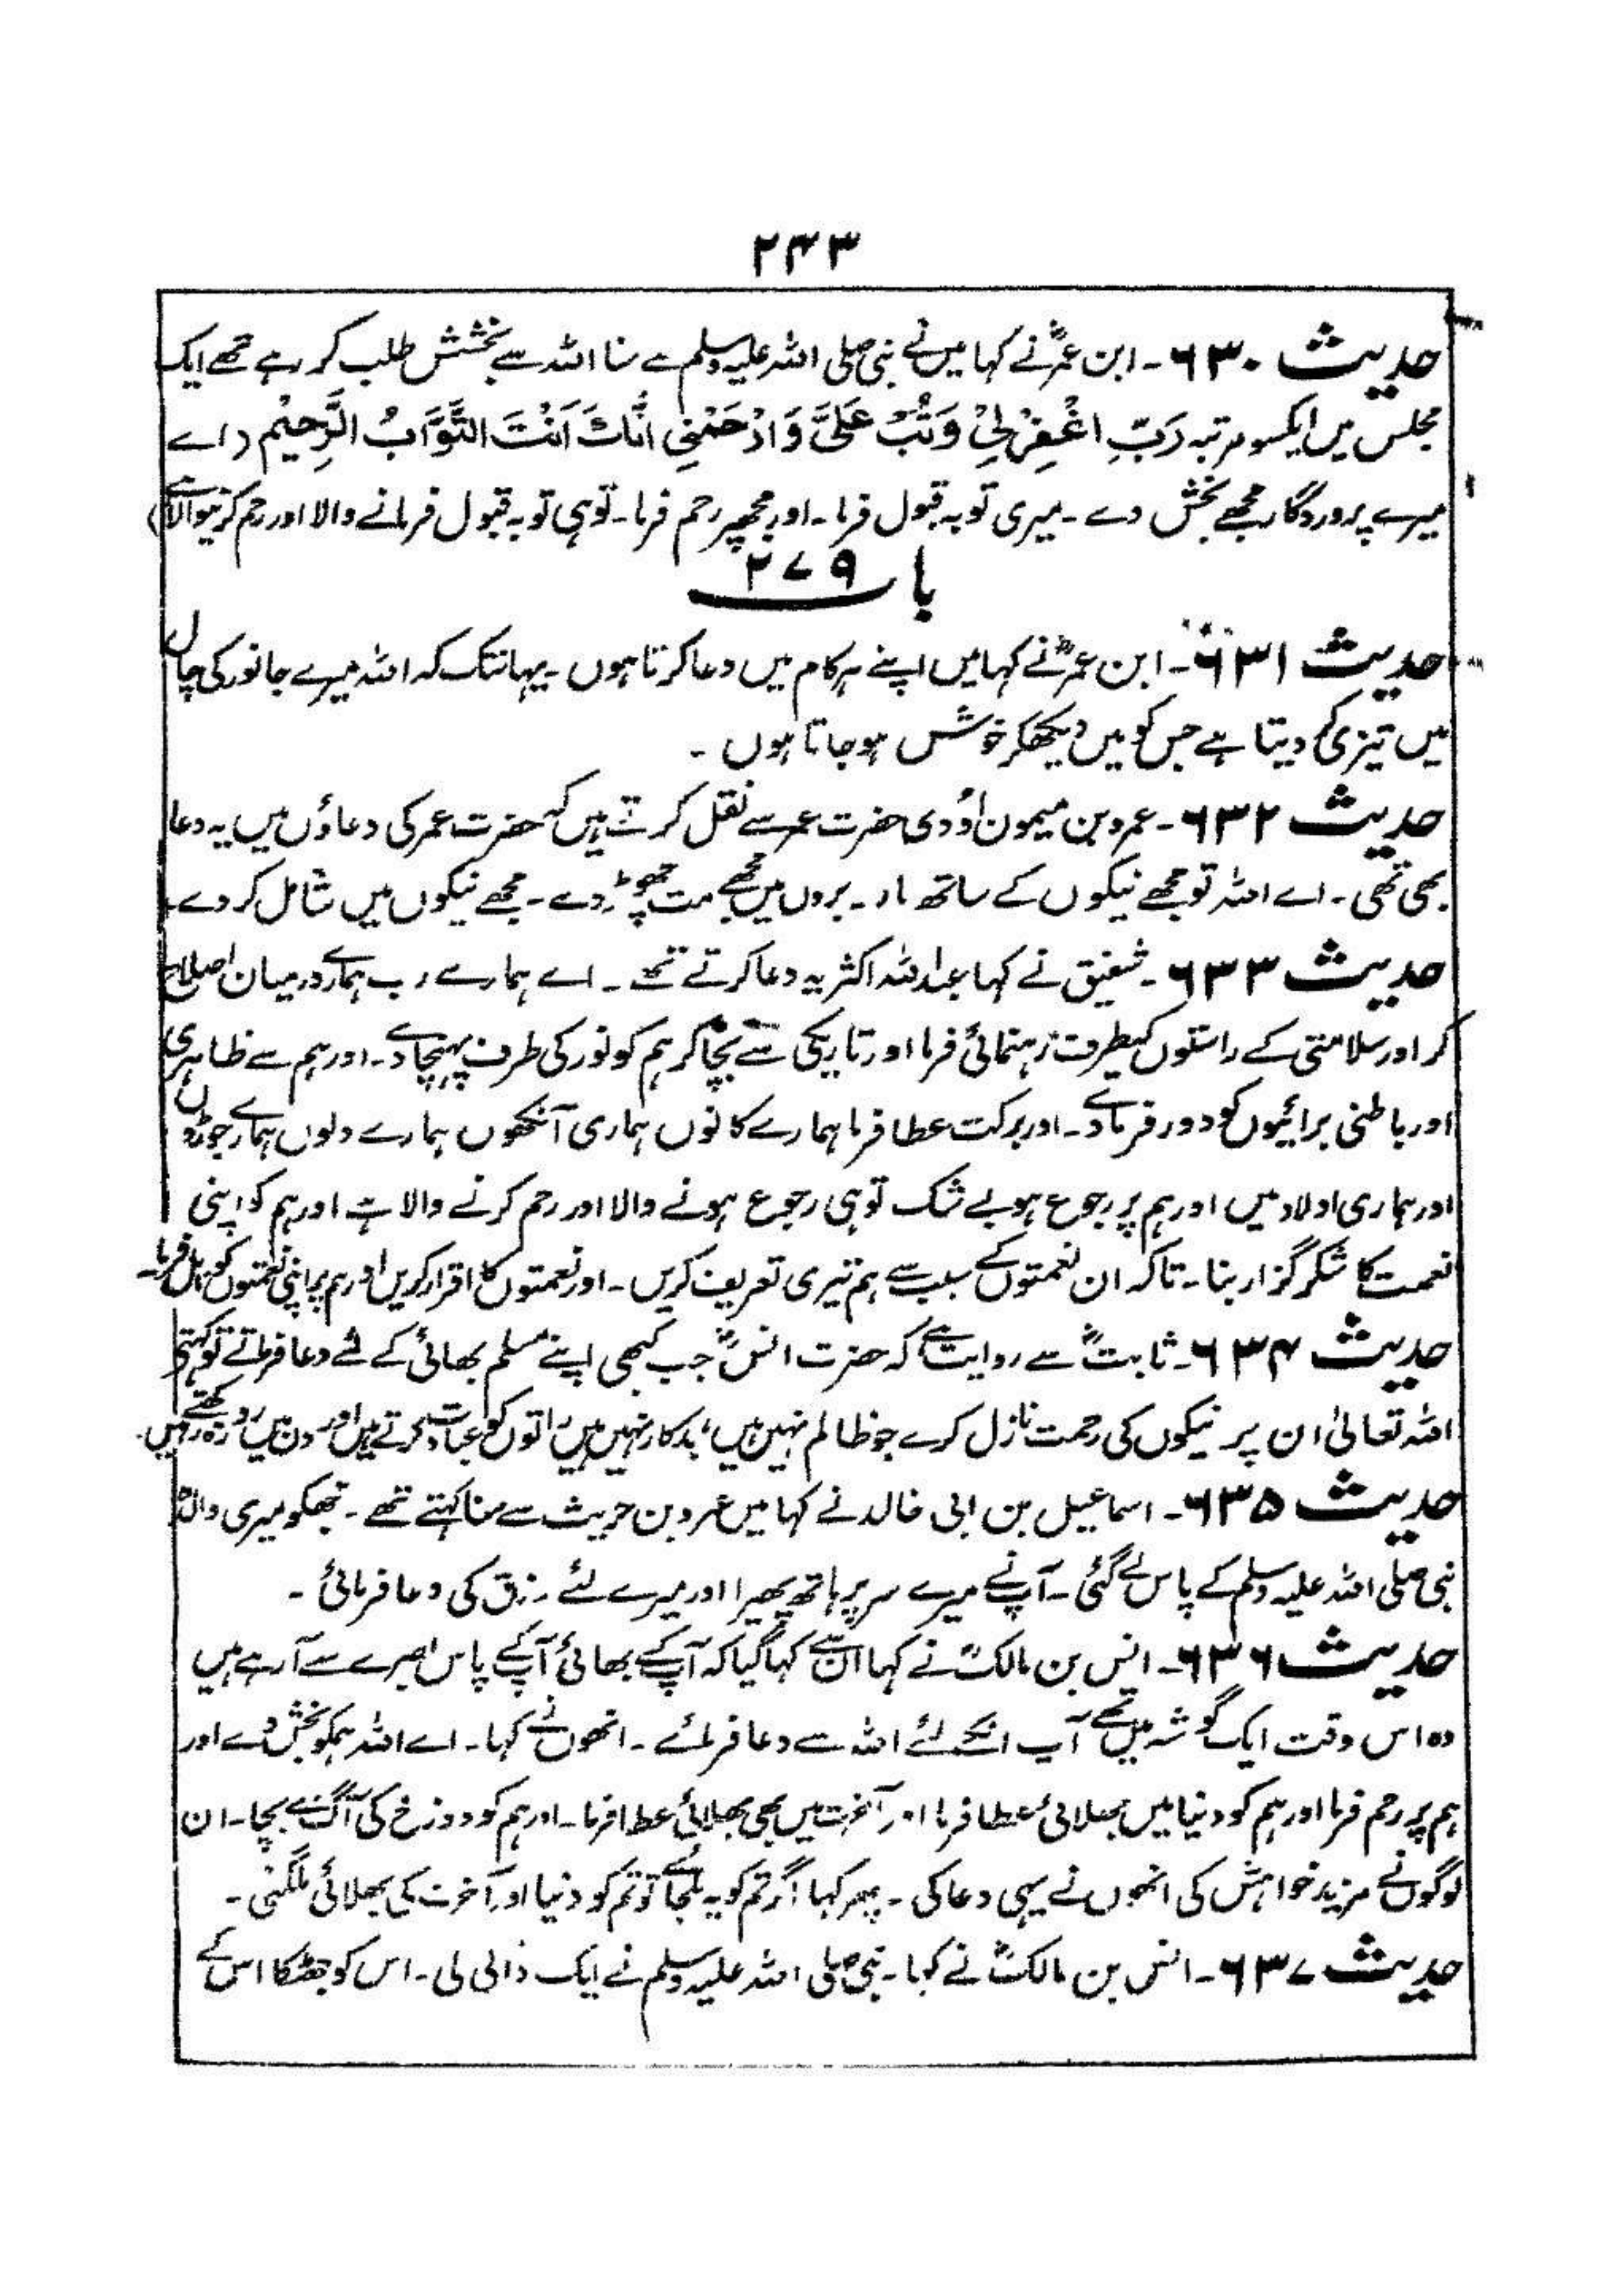 ۲۴۳
حدیث ۶۳۰۔ ابن عمرؓ نے کہا میں نے نبی صلی اللہ علیہ وسلم سے سنا اللہ سے بخشش طلب کر رہے تھے ایک
مجلس میں ایکسو مرتبہ رَبِّ اغْفِرْلِیْ وَتُبْ عَلَیَّ وَارْحَمْنِی اِنَّكَ اَنْتَ التَّوَّابُ الرَّحِیْم (اے
میرے پروردگار مجھے بخش دے ۔ میری توبہ قبول فرما ۔ اور مجھپر رحم فرما ۔ توہی توبہ قبول فرمانے والا اور رحم کرنیوالا ہے)
باب ۲۷۹
حدیث ۶۳۱۔ ابن عمرؓ نے کہا میں اپنے ہر کام میں دعا کرتا ہوں ۔ یہانتک کہ اللہ میرے جانور کی چال
میں تیزی دیتا ہے جس کو میں دیکھکر خوش ہو جاتا ہوں ۔
حدیث ۶۳۲۔ عمرو بن میمون اَوْدی حضرت عمر سے نقل کرتے ہیں کہ حضرت عمر کی دعاؤں میں یہ دعا
بھی تھی ۔ اے اللہ تو مجھے نیکوں کے ساتھ مار ۔ بروں میں مجھے مت چھوڑ دے ۔ مجھے نیکوں میں شامل کر دے
حدیث ۶۳۳۔ شفیق نے کہا عبداللہ اکثر یہ دعا کرتے تھے ۔ اے ہمارے رب ہمارے درمیان اصلاح
کر اور سلامتی کے راستوں کیطرف رہنمائی فرما اور تاریکی سے بچا کر ہم کو نور کی طرف پہنچا دے ۔ اور ہم سے ظاہری
اور باطنی برائیوں کو دور فرمادے ۔ اور برکت عطا فرما ہمارے کانوں ہماری آنکھوں ہمارے دلوں ہمارے جوڑوں
اور ہماری اولاد میں اور ہم پر رجوع ہو بے شک توہی رجوع ہونے والا اور رحم کرنے والا ہے اور ہم کو اپنی
نعمت کا شکر گزار بنا ۔ تاکہ ان نعمتوں کے سبب سے ہم تیری تعریف کریں ۔ اور نعمتوں کا اقرار کریں اور ہم پر اپنی نعمتوں کو کامل فرما ۔
حدیث ۶۳۴۔ ثابتؓ سے روایت ہے کہ حضرت انسؓ جب کبھی اپنے مسلم بھائی کے لئے دعا فرماتے تو کہتے
اللہ تعالیٰ ان پر نیکوں کی رحمت نازل کرے جو ظالم نہیں ہیں، بدکار نہیں ہیں راتوں کو عبادت کرتے ہیں اور دن میں روزہ رکھتے ہیں ۔
حدیث ۶۳۵۔ اسماعیل بن ابی خالد نے کہا میں عمرو بن حریث سے سنا کہتے تھے ۔ مجھکو میری والدہ
نبی صلی اللہ علیہ وسلم کے پاس لے گئی ۔ آپ نے میرے سر پر ہاتھ پھیرا اور میرے لئے رزق کی دعا فرمائی ۔
حدیث ۶۳۶۔ انس بن مالکؓ نے کہا ان سے کہا گیا کہ آپ کے بھائی آپ کے پاس بصرے سے آرہے ہیں
وہ اس وقت ایک گوشہ میں تھے آپ انکے لئے اللہ سے دعا فرمائے ۔ انھوں نے کہا ۔ اے اللہ ہمکو بخش دے اور
ہم پر رحم فرما اور ہم کو دنیا میں بھلائی عطا فرما اور آخرت میں بھی بھلائی عطا فرما ۔ اور ہم کو دوزخ کی آگ سے بچا ۔ ان
لوگوں نے مزید خواہش کی انھوں نے یہی دعا کی ۔ پھر کہا اگر تم کو یہ ملجائے تو تم کو دنیا اور آخرت کی بھلائی ملگئی ۔
حدیث ۶۳۷۔ انس بن مالکؓ نے کہا ۔ نبی صلی اللہ علیہ وسلم نے ایک ڈالی لی ۔ اس کو جھٹکا اس کے